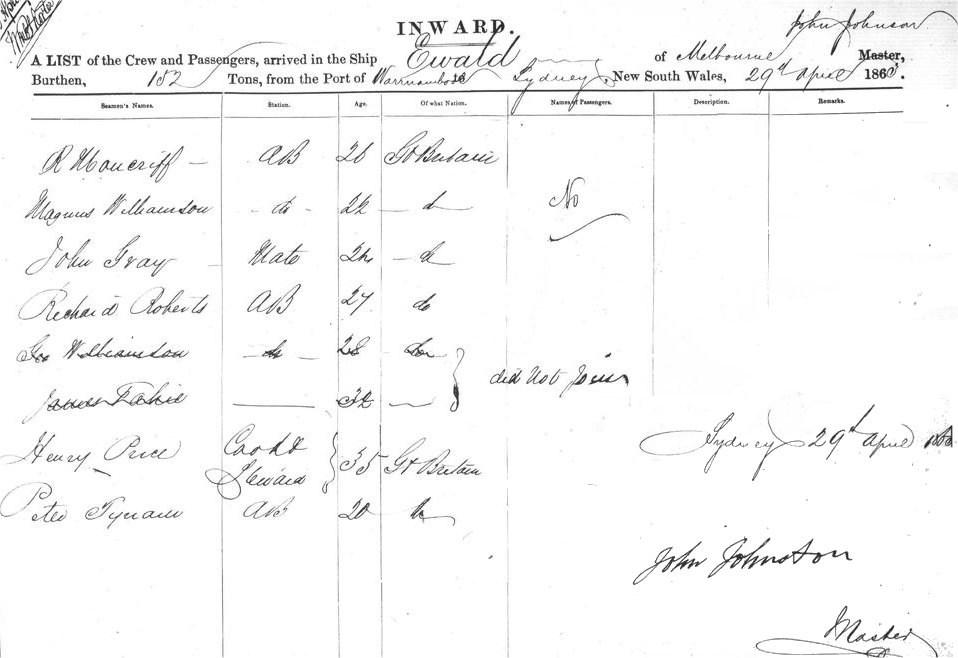 INWARD.
John Johnson
A LIST of the Crew and Passengers, arrived in the Ship Ewald of Melbourne Master,
Burthen, 152 Tons, from the Port of Warrnambool to Sydney, New South Wales, 29th April 1860.
Seamen's Names. Station. Age. Of what Nation. Names of Passengers. Description. Remarks.
R Moncriff AB 26 Gt Britain
Magnus Williamson do 22 do No
John Gray Mate 24 do
Richard Roberts AB 27 do
Geo Williamson do 28 do
did not join
James 32
Henry Price Cook & Steward 35 Gt Britain
Sydney 29th April 1860
Peter AB 20 do
John Johnston
Master